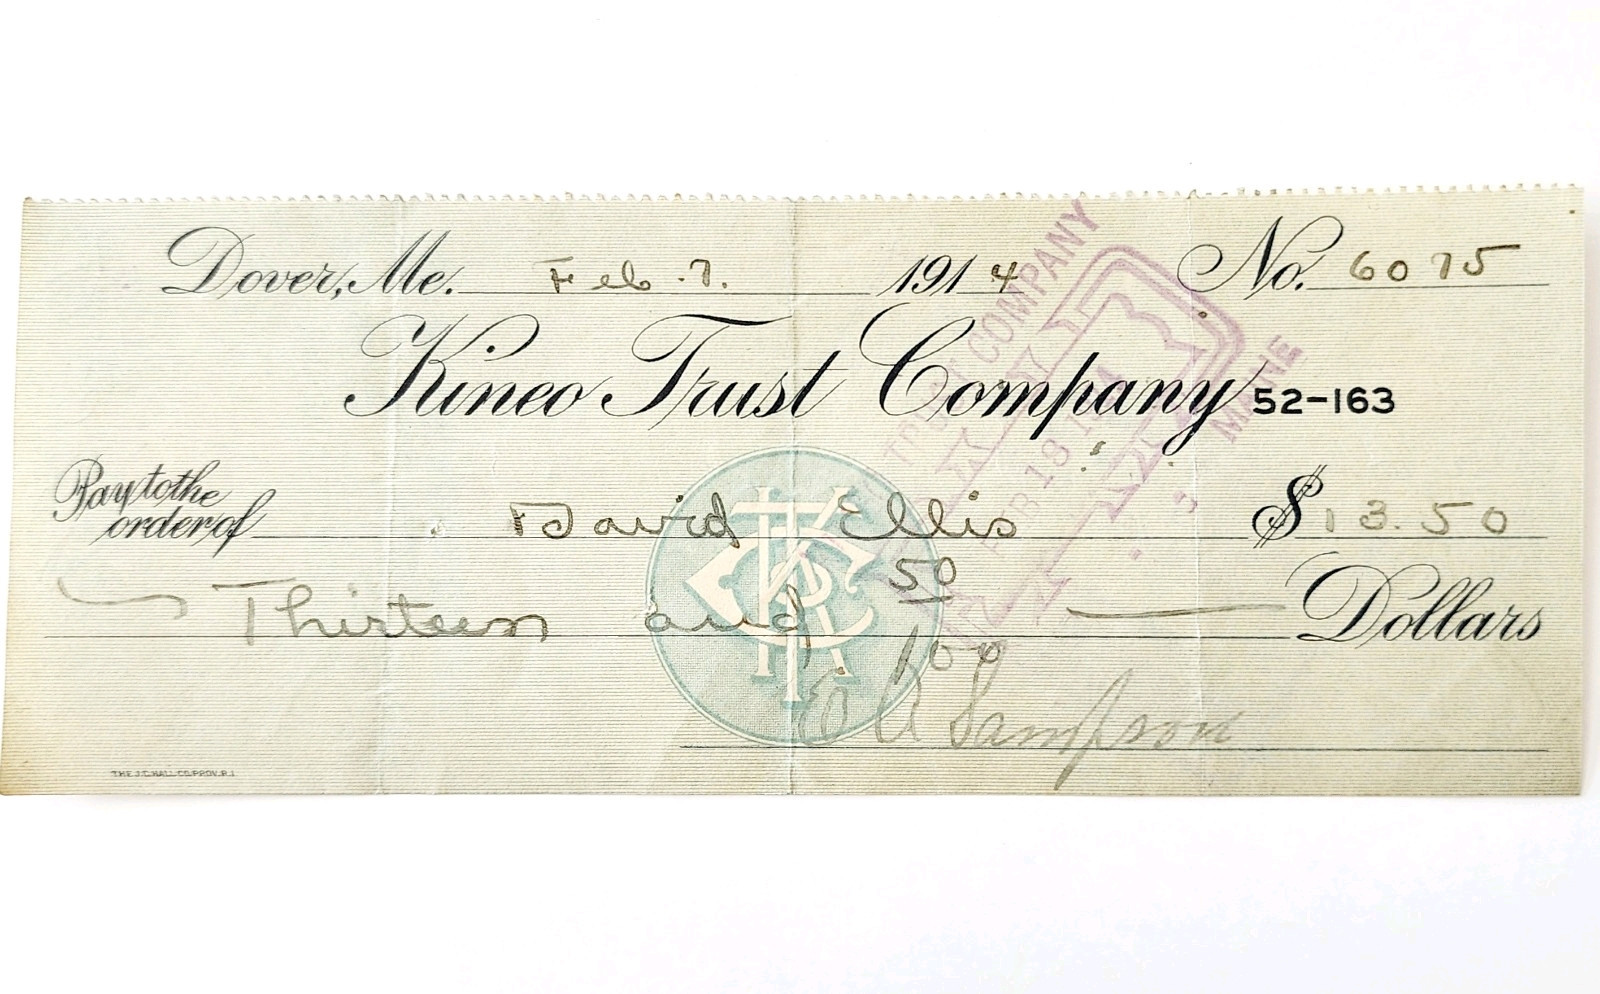 Dover, Me. Feb. 7. 1914 No. 6075
Kineo Trust Company 52-163
Pay to the order of David Ellis $13.50
Thirteen and 50/100 Dollars
E A Sampson
THE J.C. HALL CO. PROV. R.I.
TRUST COMPANY
PAID
18 1914
MAINE